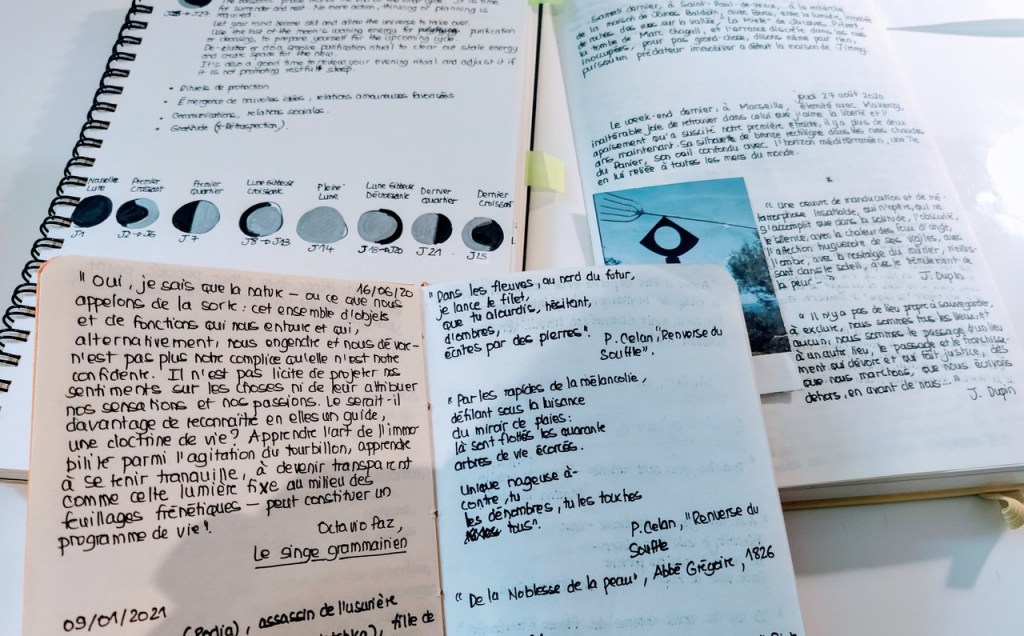 for surrender and rest. No more action, thinking or planning is
required.
Let your mind become still and allow the universe to take over.
Use the last of the moon's waning energy for purification
or cleansing, to prepare yourself for the upcoming cycle.
De-clutter or do a smoke purification ritual to clear out stale energy
and create space for the new.
It's also a good time to review your evening ritual and adjust it if
it is not promoting restful sleep.
• Rituels de protection
• Émergence de nouvelles idées, relations amoureuses favorisées
• Communications, relations sociales.
• Gratitude (+ Rétrospection).
Nouvelle Lune
Premier Croissant
Premier Quartier
Lune Gibbeuse Croissante
Pleine Lune
Lune Gibbeuse Décroissante
Dernier Quartier
Dernier Croissant
J1
J2→J6
J7
J8→J13
J14
J15→J20
J21
J25
Samedi dernier, à Saint-Paul-de-Vence, à la recherche
de la maison de James Baldwin,
la tombe de Marc Chagall, et
inoccupées, pour pas grand-chose, disons même pour rien,
puisqu'un prédateur immobilier a détruit la maison de Jimmy.
jeudi 27 août 2020
Le week-end dernier, à Marseille, éternité avec
inaltérable joie de retrouver dans celui que j'aime la liberté et l'
apaisement qu'a suscité notre première étreinte, il y a plus de deux
ans, maintenant. Sa silhouette de bronze rectiligne dans les rues chaudes
du Panier, son œil confondu avec l'horizon méditerranéen,
en lui reliée à toutes les mers du monde.
*
« Une œuvre de manducation et de mé-
tamorphose insatiable, qui n'opère, qui ne
s'accomplit que dans la solitude, l'obscurité,
le silence, avec la chaleur des feux d'angle,
l'affection rugueuse de ses vigiles, avec
l'ombre, avec la nostalgie du mûrier,
sant dans le soleil, avec le tremblement de
la peur... »
J. Dupin
« Il n'y a pas de lieu propre à sauvegarder,
à exclure, nous sommes tous les lieux, et
aucun, nous sommes le passage d'un lieu
à un autre lieu, le passage et le franchisse-
ment qui dévore et qui fait justice, dès
que nous marchons, que nous écrivons
dehors, en avant de nous... »
J. Dupin
16/06/20
"Oui, je sais que la nature — ou ce que nous
appelons de la sorte : cet ensemble d'objets
et de fonctions qui nous entoure et qui,
alternativement, nous engendre et nous dévore —
n'est pas plus notre complice qu'elle n'est notre
confidente. Il n'est pas licite de projeter nos
sentiments sur les choses ni de leur attribuer
nos sensations et nos passions. Le serait-il
davantage de reconnaître en elles un guide,
une doctrine de vie? Apprendre l'art de l'immo-
bilité parmi l'agitation du tourbillon, apprendre
à se tenir tranquille, à devenir transparent
comme cette lumière fixe au milieu des
feuillages frénétiques — peut constituer un
programme de vie".
Octavio Paz,
Le singe grammairien
09/01/2021
(Rodia), assassin de l'usurière
fille de
"Dans les fleuves, au nord du futur,
je lance le filet,
que tu alourdis, hésitant,
d'ombres,
écrites par des pierres".
P. Celan, "Renverse du
Souffle".
"Par les rapides de la mélancolie,
défilant sous la luisance
du miroir de plaies:
là sont flottés les quarante
arbres de vie écorcés.
Unique nageuse à-
contre, tu
les dénombres, tu les touches
tous".
P. Celan, "Renverse du
Souffle
"De la Noblesse de la peau", Abbé Grégoire, 1826